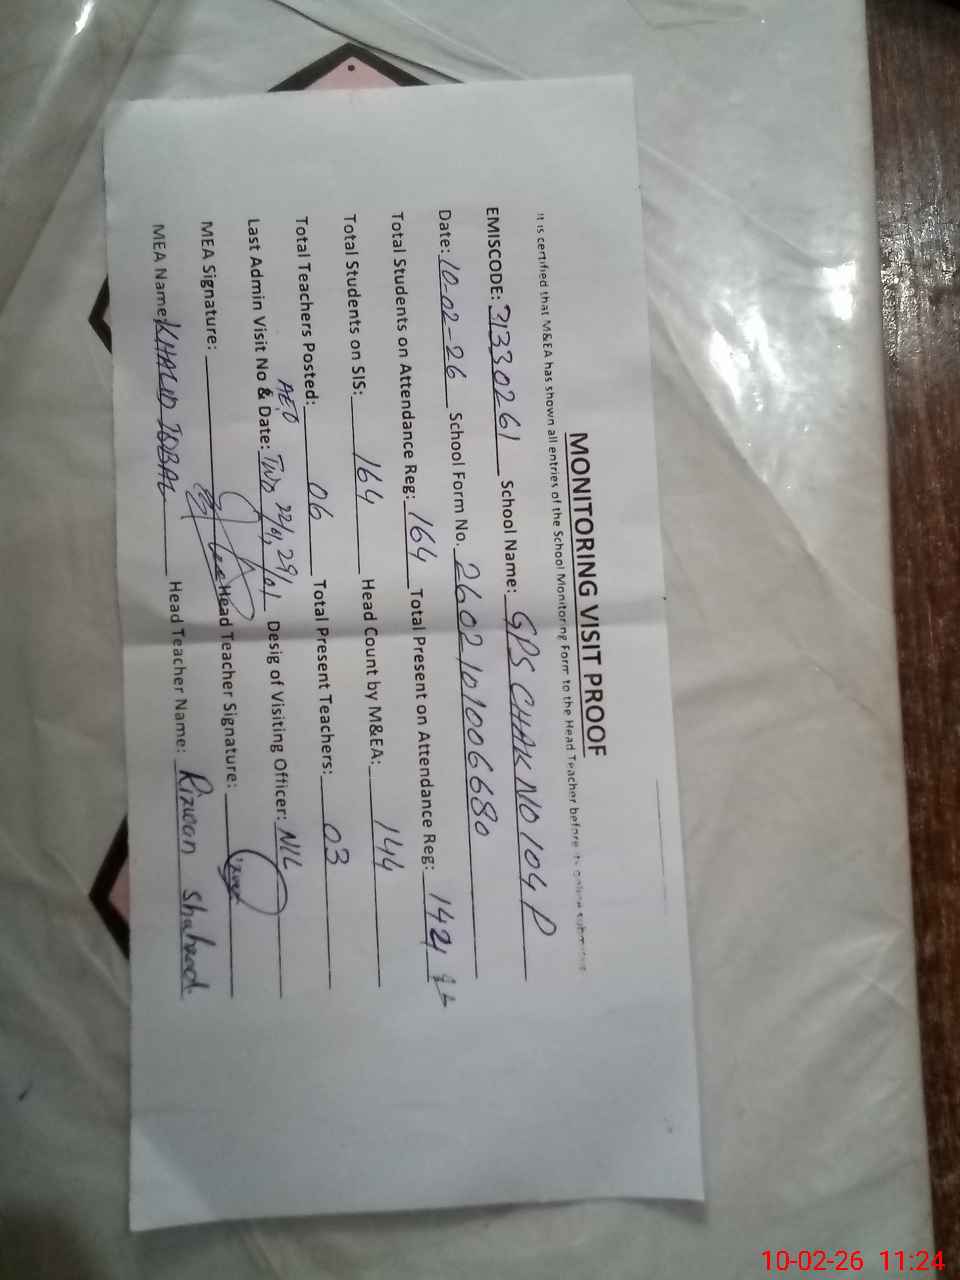 MONITORING VISIT PROOF
It is certified that M&EA has shown all entries of the School Monitoring Form to the Head Teacher before its online submission
EMISCODE: 31330261 School Name: GPS CHAK NO 104 P
Date: 10-02-26 School Form No. 2602101006680
Total Students on Attendance Reg: 164 Total Present on Attendance Reg: 142
Total Students on SIS: 164 Head Count by M&EA: 144
Total Teachers Posted: 06 Total Present Teachers: 03
AEO
Last Admin Visit No & Date: Two 22/01, 29/01 Desig of Visiting Officer: NIL
MEA Signature: Head Teacher Signature:
MEA Name: KHALID IQBAL Head Teacher Name: Rizwan Shaheed
10-02-26 11:24